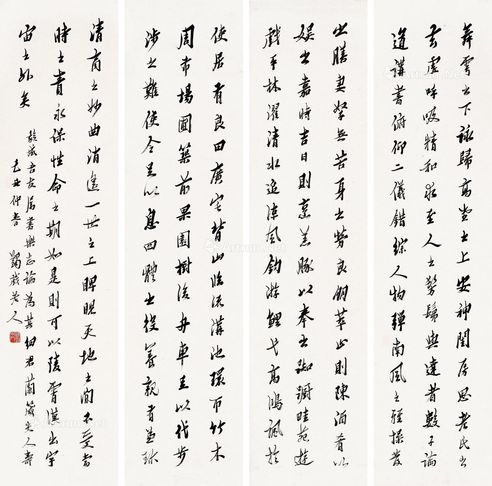 使居有良田廣宅背山臨流溝池環帀竹木
周布場圃築前果園樹後舟車足以代步
涉之難使令足以息四體之役養親有兼珍
之膳妻孥無苦身之勞良朋萃止則陳酒肴以
娛之嘉時吉日則烹羔豚以奉之躕躇畦苑遊
戲平林濯清水追涼風釣游鯉弋高鴻諷於
舞雩之下詠歸高堂之上安神閨房思老氏之
玄虛呼吸精和求至人之彷彿與達者數子論
道講書俯仰二儀錯綜人物彈南風之雅操發
清商之妙曲逍遙一世之上睥睨天地之間不受當
時之責永保性命之期如是則可以陵霄漢出宇
宙之外矣
吉友屬書樂志論為其細君蘭箴夫人壽